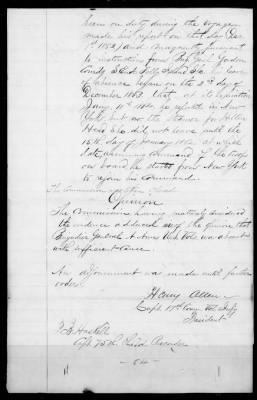 him on duty during the voyage
made his report on that day Dec
1st 1863) and
to instructions from Gen Gordon
Comdg Folly Island So Ca leave
of absence began on the 2nd day of
December 1863, that at its expiration
Jany 11th 1864 he reported in New
York, but as the Steamer for Hilton
Head So Ca did not leave until the
15th day of January 1864 at which
date assuming command of the troops
on board he started from New York
to rejoin his command.
The Commission was then closed
Opinion
The Commission having maturely considered
the evidence adduced are of the opinion that
Brigadier General A Ames Vols was absent
with sufficient cause
An adjournment was made until further
orders
Henry Allen
Capt 17th Conn Vol Infy
President
Haskell
Capt 75th Ohio Recorder